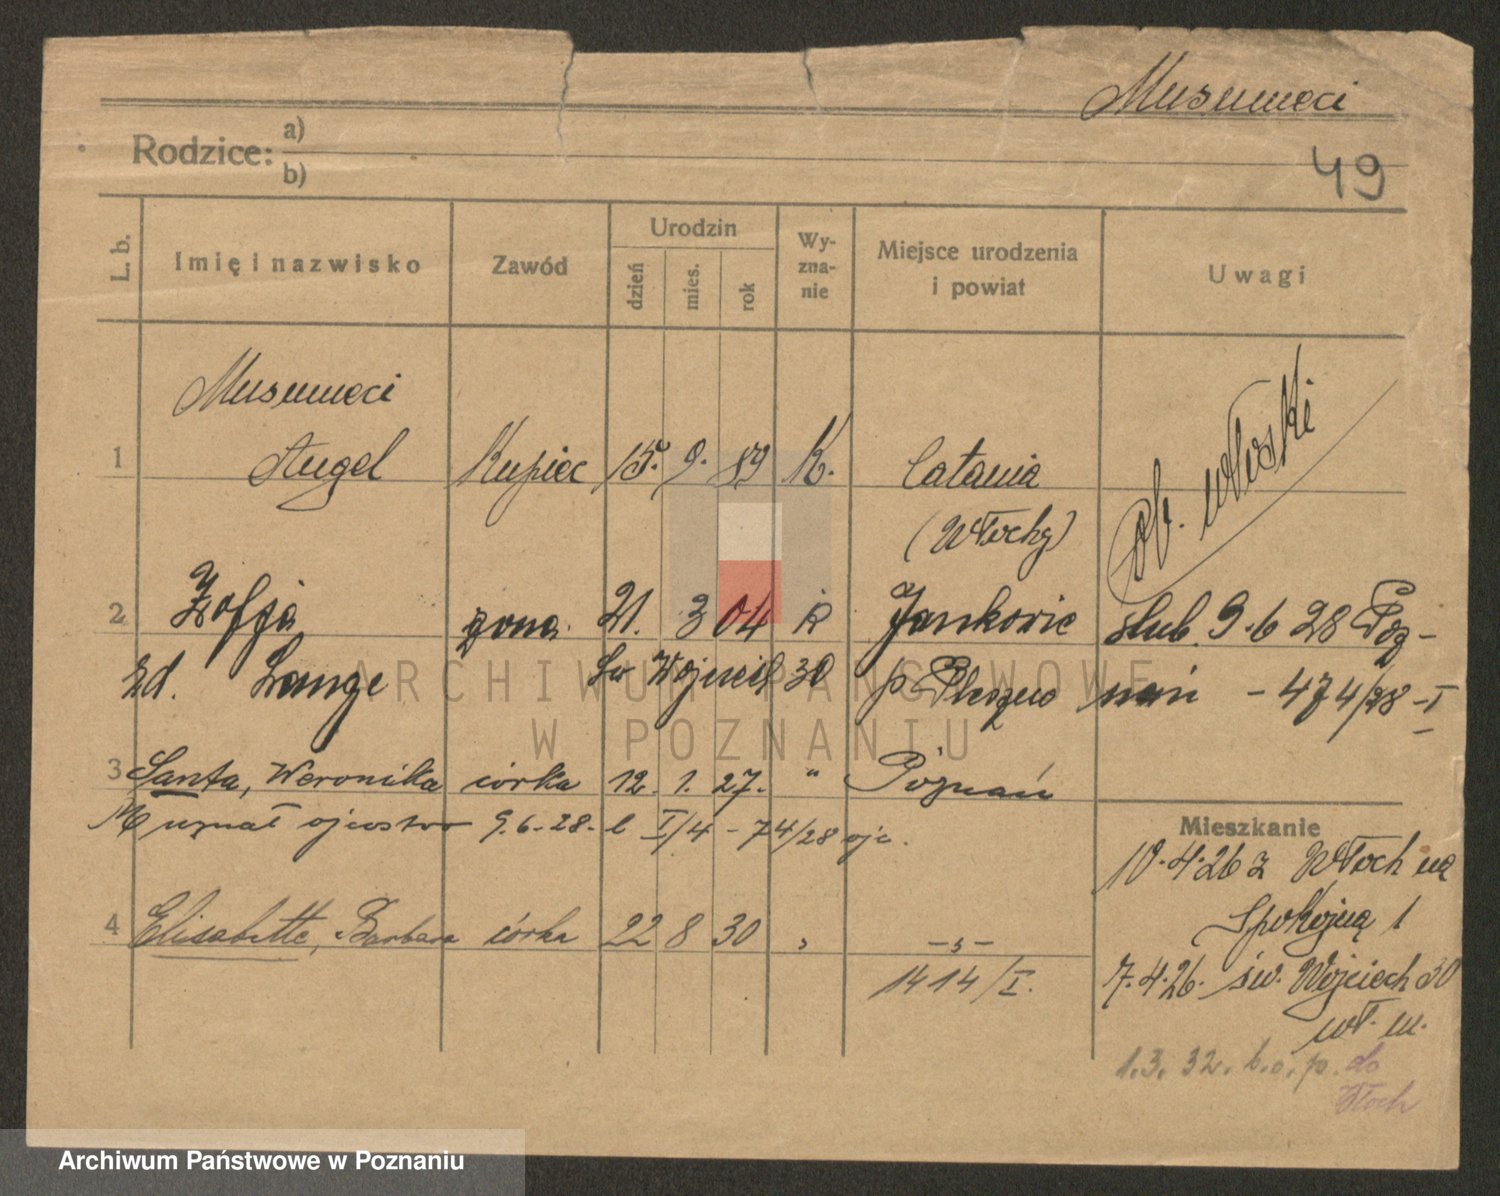 Musumeci
Rodzice: a)
b)
49
L. b.
Imię i nazwisko
Zawód
Urodzin
dzień
mies.
rok
Wy-
zna-
nie
Miejsce urodzenia
i powiat
Uwagi
Musumeci
1 Angel Kupiec 15. 9. 89 K. Catania
(Włochy)
ob. włoski
2 Zofja żona 21. 3 04 k Jankowic ślub 9.6 28 Poz-
zd. Lange Św Wojciech 30 p Pleszew nań - 474/28 - I
3 Santa, Weronika córka 12. 1. 27. " Poznań
M uznał ojcostwo 9.6.-28.- I/4 - 74/28 ojc.
Mieszkanie
10.4.26 z Włoch na
Spokojną 1
4 Elisabette, Barbara córka 22 8 30 " -"-
1414/I.
7.4.26. św. Wojciech 30
wł. m.
1.3.32. b.o.p. do
Włoch
ARCHIWUM PAŃSTWOWE
W POZNANIU
Archiwum Państwowe w Poznaniu